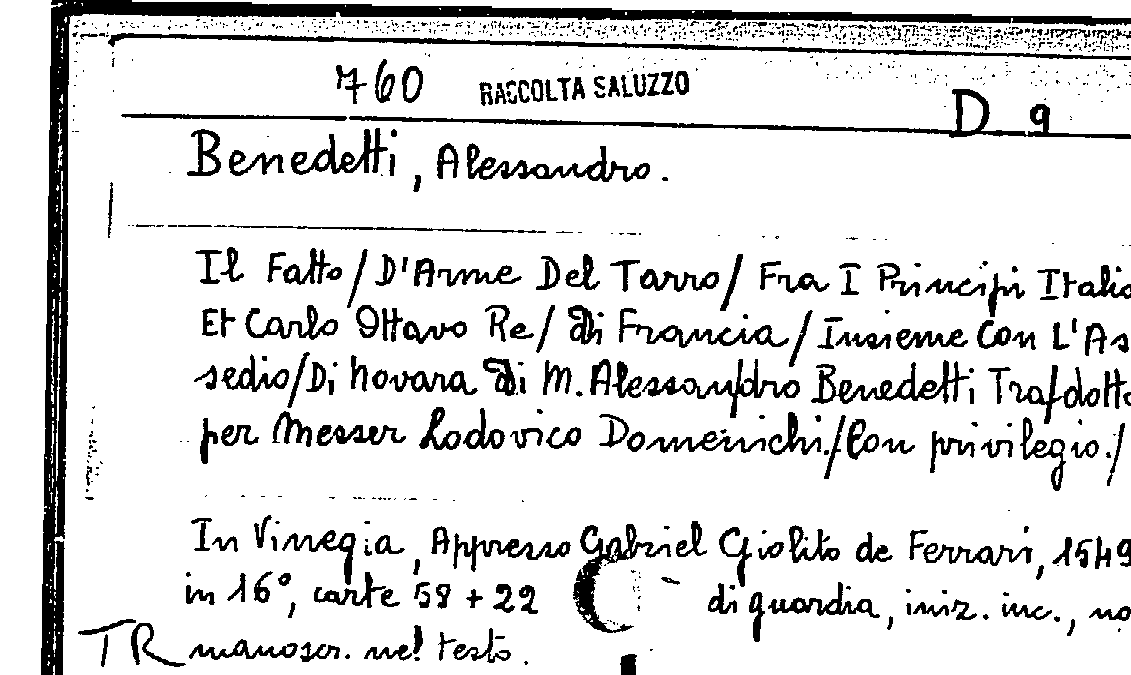 760 RACCOLTA SALUZZO D 9
Benedetti, Alessandro.
Il Fatto/D'Arme Del Tarro/ Fra I Principi Italia
Et Carlo Ottavo Re/ Di Francia/Insieme Con L'As
sedio/Di Novara Di M. Alessan/dro Benedetti Tra/dotto
per Messer Lodovico Domenichi./Con privilegio./
In Vinegia, Appresso Gabriel Giolito de Ferrari, 1549
in 16°, carte 59 + 22 di guardia, iniz. inc., no
TR manoscr. nel testo.